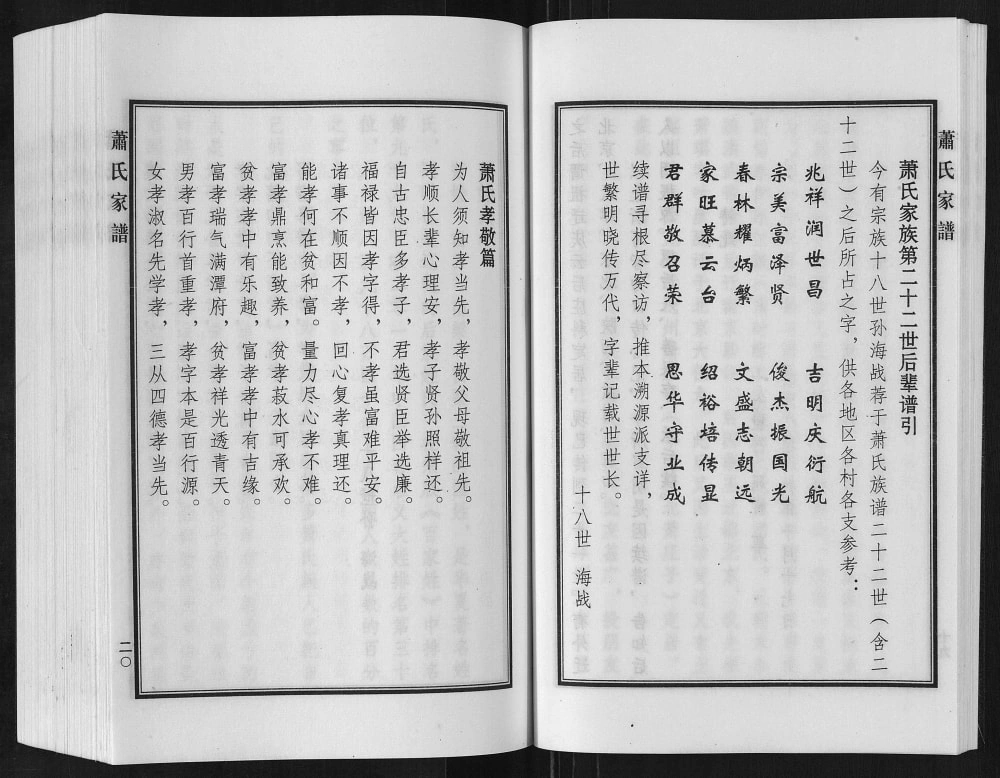 蕭氏家譜
萧氏家族第二十二世后辈谱引
今有宗族十八世孙海战荐于萧氏族谱二十二世（含二
十二世）之后所占之字，供各地区各村各支参考：
兆祥润世昌　吉明庆衍航
宗美富泽贤　俊杰振国光
春林耀炳繁　文盛志朝远
家旺慕云台　绍裕培传显
君群敬召荣　思华守业成
续谱寻根尽察访，推本溯源派支详，
世繁明晓传万代，字辈记载世世长。
十八世　海战
萧氏孝敬篇
为人须知孝当先，孝敬父母敬祖先。
孝顺长辈心理安，孝子贤孙照样还。
自古忠臣多孝子，君选贤臣举选廉。
福禄皆因孝字得，不孝虽富难平安。
诸事不顺因不孝，回心复孝真理还。
能孝何在贫和富。量力尽心孝不难。
富孝鼎烹能致养，贫孝菽水可承欢。
贫孝孝中有乐趣，富孝孝中有吉缘。
富孝瑞气满潭府，贫孝祥光透青天。
男孝百行首重孝，孝字本是百行源。
女孝淑名先学孝，三从四德孝当先。
蕭氏家譜
二〇